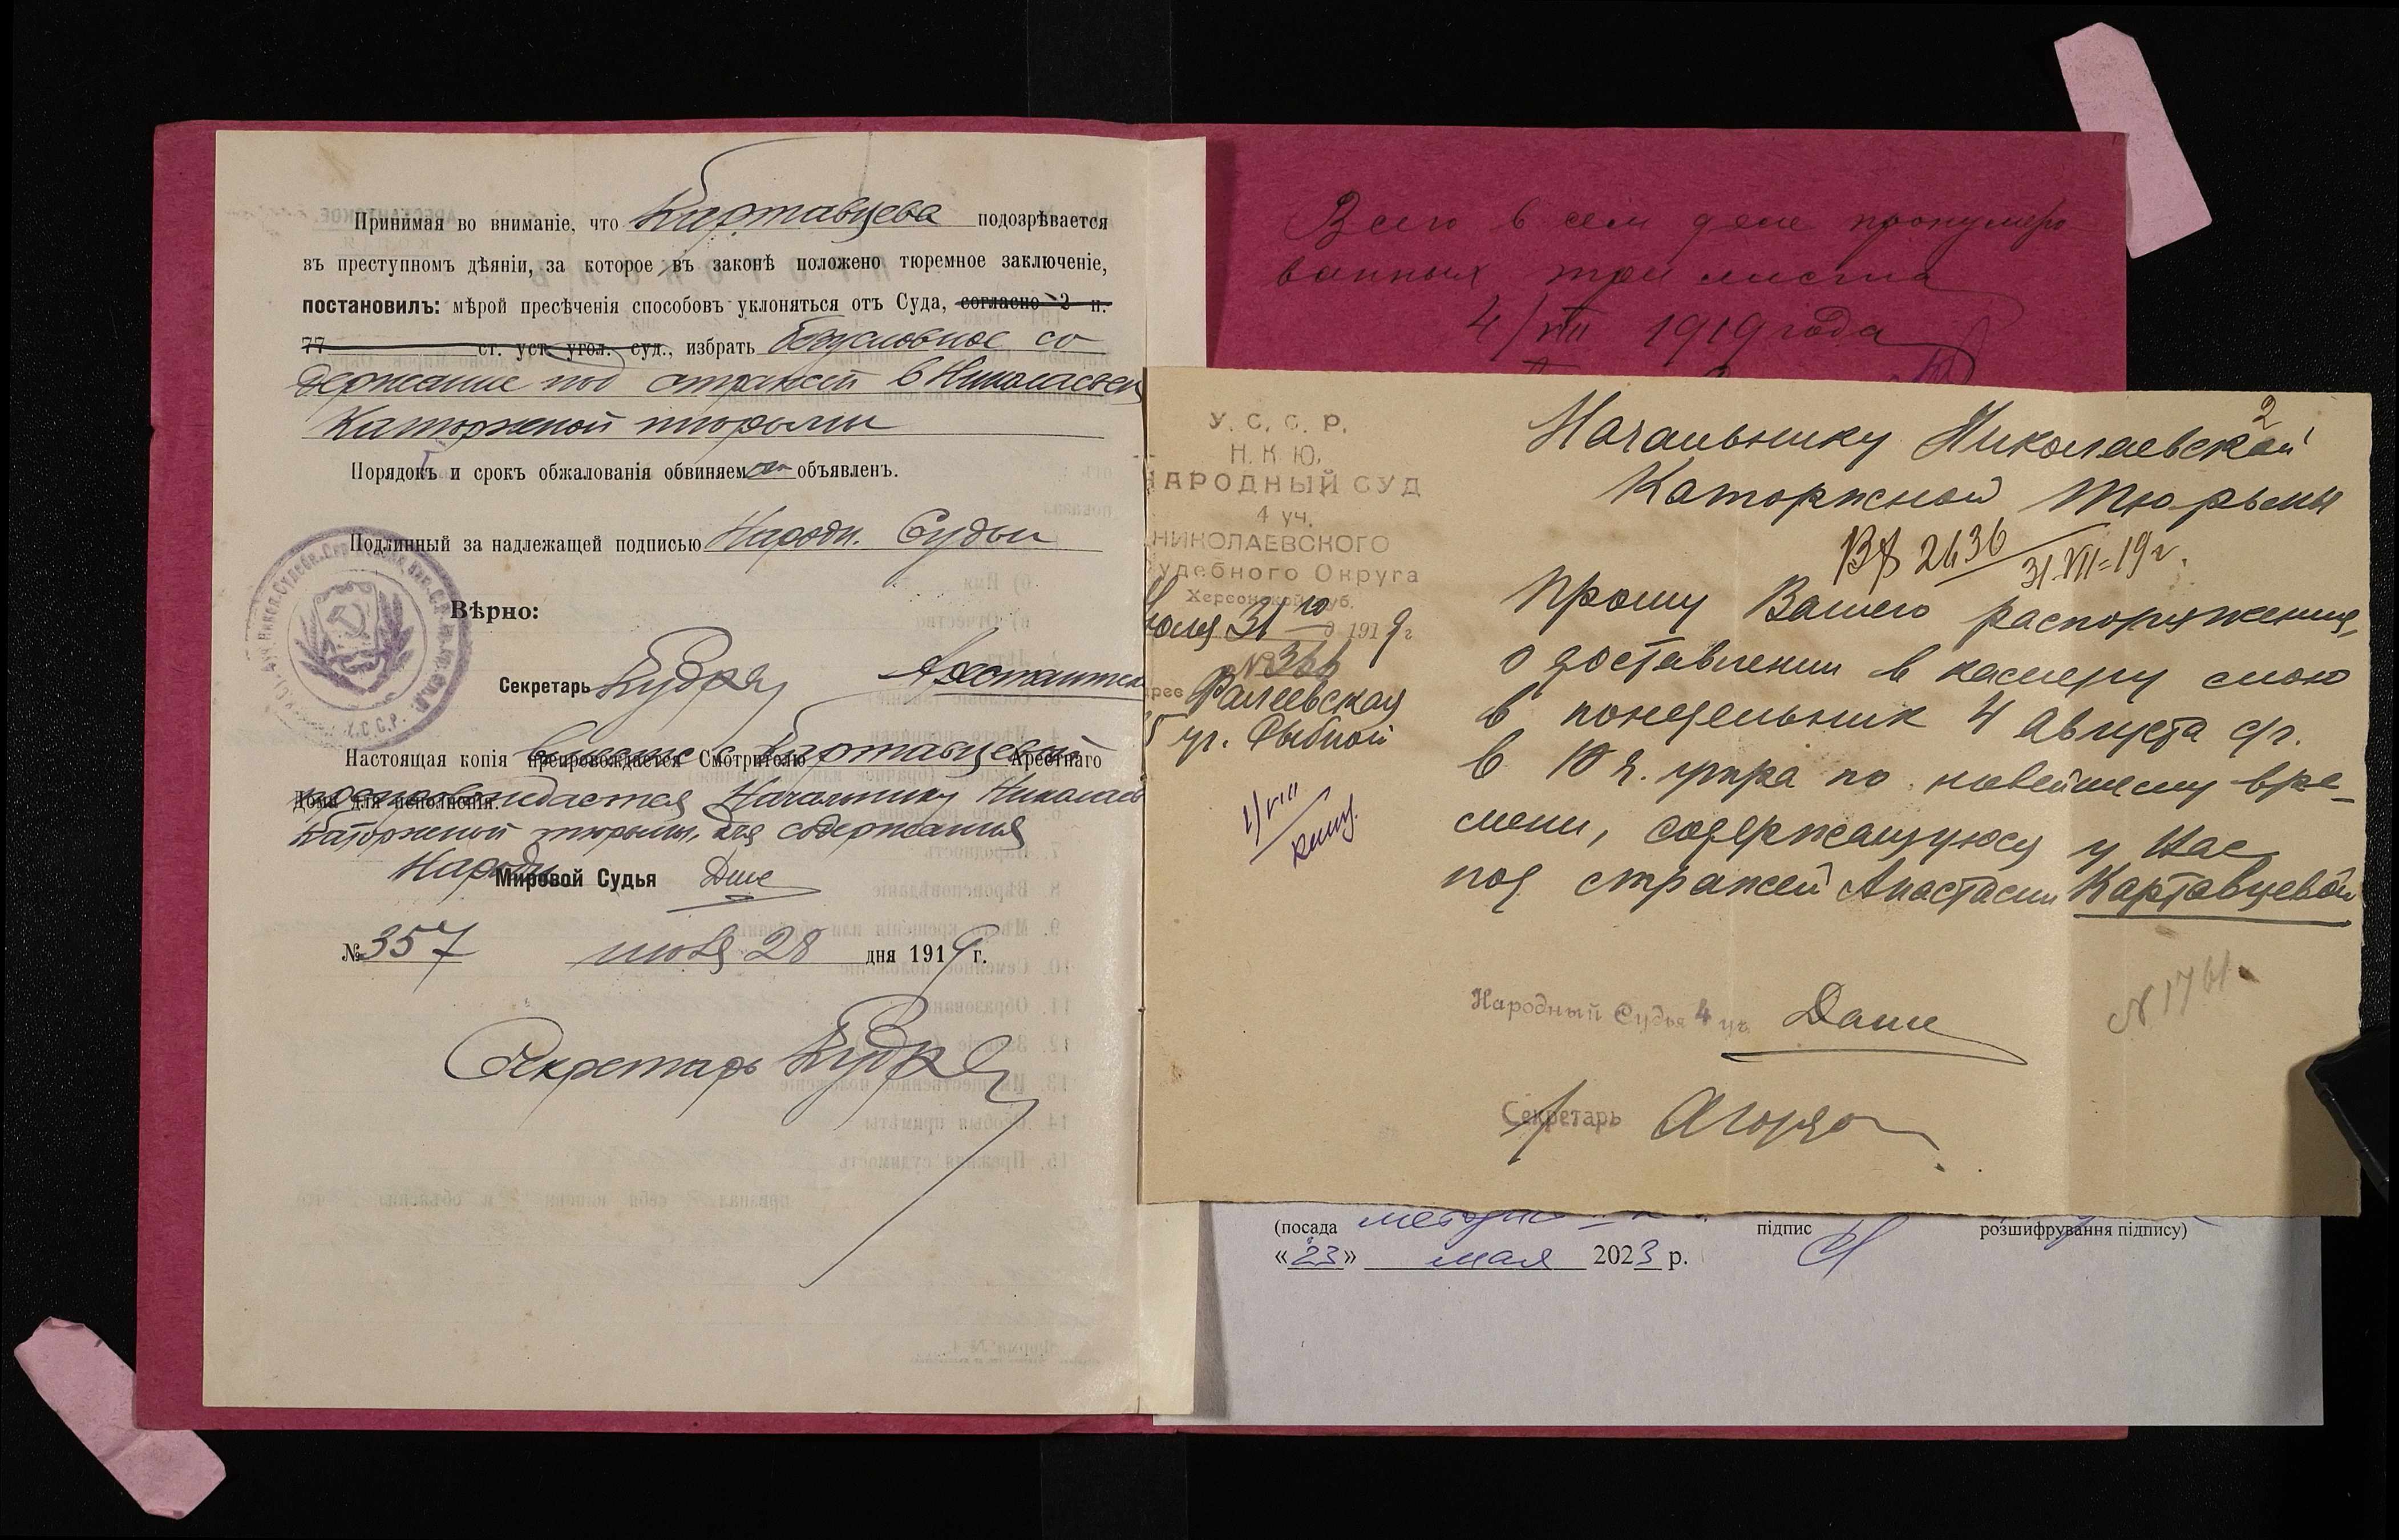 Принимая во вниманіе, что Картавцева подозрѣвается
въ преступномъ дѣяніи, за которое въ законѣ положено тюремное заключеніе,
постановилъ: мѣрой пресѣченія способовъ уклоняться отъ Суда, согласно 2 п.
77 ст. уст. угол. суд., избрать безусловное со
держание под стражей в Николаевск
Каторжной тюрьми
Порядокъ и срокъ обжалованія обвиняемой объявленъ.
Подлинный за надлежащей подписью Народн. Судьи
Вѣрно:
Секретарь Кудря
Арестантск
Настоящая копія вместе с Картавцевой
препровождается Смотрителю Арестнаго
Дома для исполненія.
препровождается Начальнику Николаев
Каторжной тюрьмы, для содержания
Народн
Мировой Судья Даше
№ 357 июля 28 дня 1919 г.
Секретарь Кудря
Всего в сем деле пронумеро
ванных три листа
4/VIII 1919 года
2
У. С. С. Р.
Н. К. Ю.
НАРОДНЫЙ СУД
4 уч.
НИКОЛАЕВСКОГО
Судебного Округа
Херсонской губ.
Июля 31 го д 1919 г
№ 366
Фалеевская
5 уг. Рыбной
1/VIII
Начальнику Николаевской
Каторжной Тюрьмы
Вх 2636 31.VII-19 г.
Прошу Вашего распоряжения,
о доставлении в камеру мою
в понедельник 4 Августа с/г.
в 10 ч. утра по новейшему вре-
мени, содержащуюся у Вас
под стражей Анастасии Картавцевой
N 1761
Народный Судья 4 уч. Даше
Секретарь
(посада підпис розшифрування підпису)
«23» мая 2023 р.